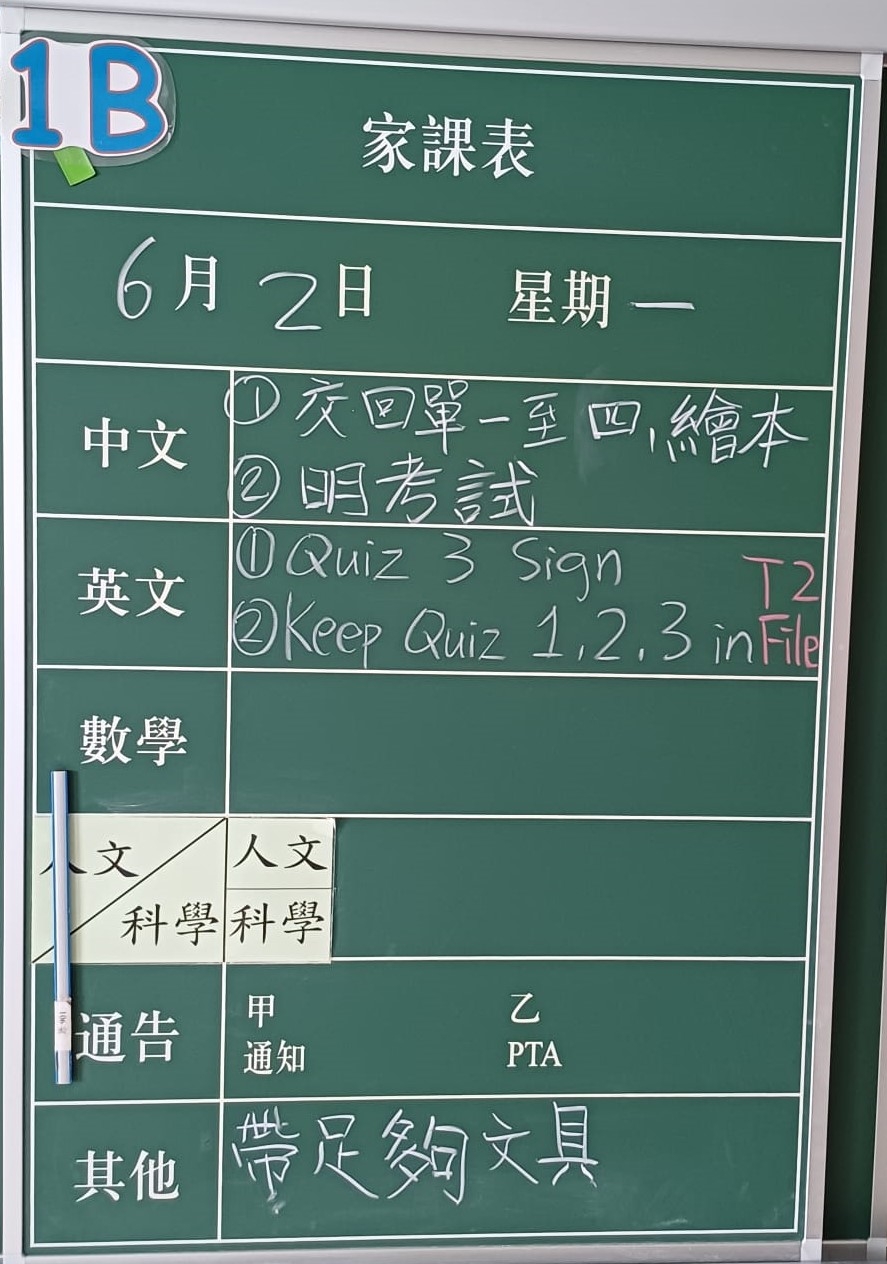 1B
家課表
6月2日 星期一
中文
① 交回單一至四,繪本
② 明考試
英文
① Quiz 3 Sign
② Keep Quiz 1,2,3 in T2 File
數學
人文
科學
人文
科學
通告
甲 乙
通知 PTA
其他
帶足夠文具